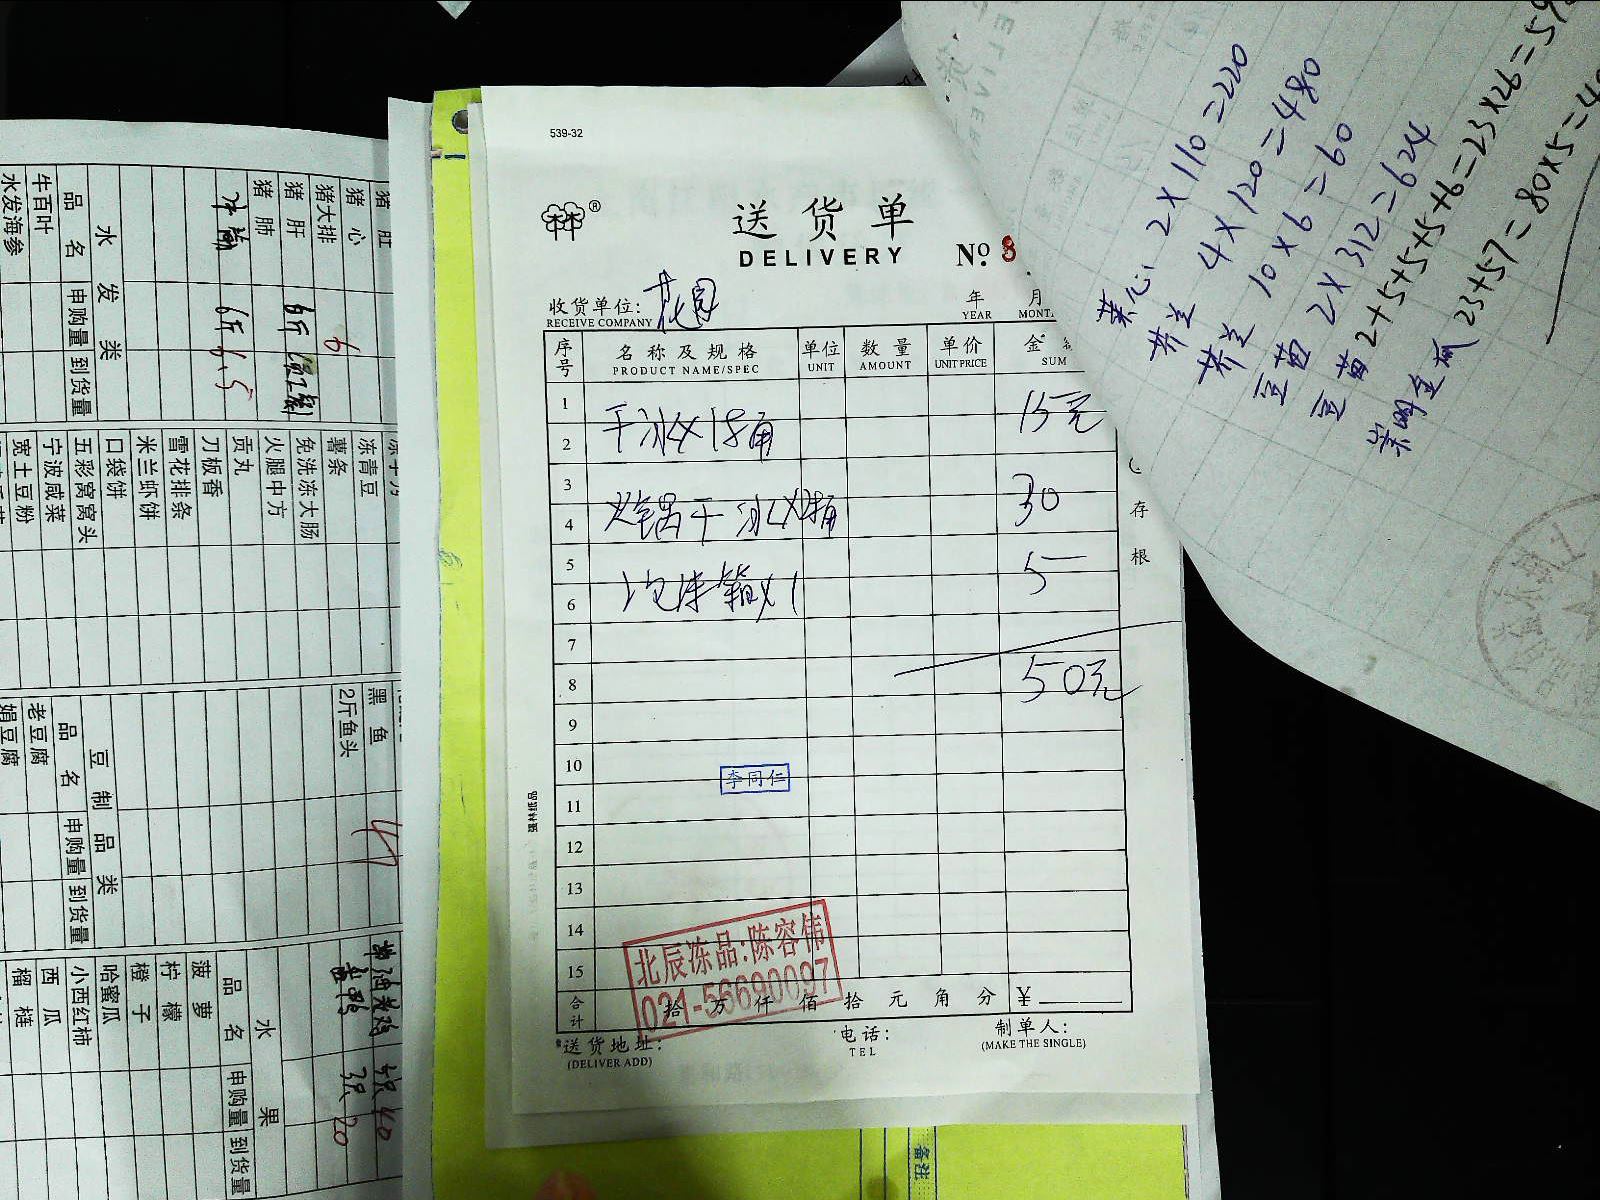 539-32
送货单
DELIVERY
Nº 8
收货单位: 花园
RECEIVE COMPANY
年 月
YEAR
序号 名称及规格 单位 数量 单价 金
PRODUCT NAME/SPEC UNIT AMOUNT UNIT PRICE SUM
1
干冰×1桶 15元
2
3
火锅干冰×2桶 30
4
5
泡沫箱×1 5
6
7
8
50元
9
10
李同仁
11
12
13
14
15
北辰冻品:陈容伟
021-56690097
合计 拾 万 仟 佰 拾 元 角 分 ¥
送货地址:
(DELIVER ADD)
电话:
TEL
制单人:
(MAKE THE SINGLE)
存根
备注
菜心 2×110=220
4×120=480
10×6=60
豆苗 2×312=624
豆苗 2+5+5+5+6=23×26=59
23+57=80×5=4
猪肚
猪心
猪大排 6
猪肝 6斤
猪肺
6斤 6.5
水发类
品名 申购量 到货量
牛百叶
水发海参
冻青豆
薯条
免洗冻大肠
火腿中方
贡丸
刀板香
雪花排条
米兰虾饼
口袋饼
五彩窝窝头
宁波咸菜
宽土豆粉
黑鱼
2斤鱼头
豆制品类
品名 申购量 到货量
老豆腐
娟豆腐
40
3只 20
水果
品名 申购量 到货量
菠萝
柠檬
橙子
哈蜜瓜
小西红柿
西瓜
榴梿